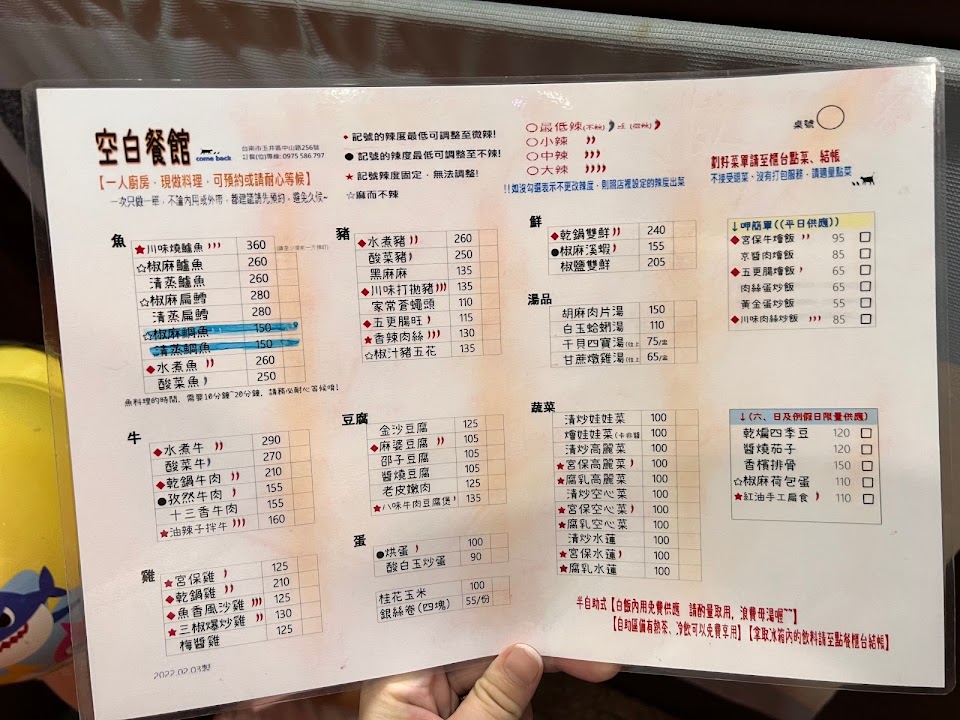 空白餐館
come back
台南市玉井區中山路256號
訂餐(位)專線: 0975 586 797
【一人廚房,現做料理,可預約或請耐心等候】
一次只做一單,不論內用或外帶,都建議請先預約,避免久候~
◆記號的辣度最低可調整至微辣!
●記號的辣度最低可調整至不辣!
★記號辣度固定,無法調整!
☆麻而不辣
○最低辣(不辣) 或 (微辣)
○小辣
○中辣
○大辣
!!如沒勾選表示不更改辣度,則照店裡設定的辣度出菜
桌號
劃好菜單請至櫃台點菜、結帳
不接受退菜、沒有打包服務,請適量點菜
魚
★川味燒鱸魚 360
☆椒麻鱸魚 260
清蒸鱸魚 260
☆椒麻扁鱈 280
清蒸扁鱈 280
☆椒麻鯛魚 150
清蒸鯛魚 150
◆水煮魚 260
酸菜魚 250
魚料理的時間,需要10分鐘~20分鐘,請務必耐心等候唷!
牛
◆水煮牛 290
酸菜牛 270
◆乾鍋牛肉 210
●孜然牛肉 155
十三香牛肉 155
★油辣子拌牛 160
雞
★宮保雞 125
◆乾鍋雞 210
◆魚香風沙雞 125
★三椒爆炒雞 130
梅醬雞 125
2022.02.03製
豬
◆水煮豬 260
酸菜豬 250
黑麻麻 135
◆川味打拋豬 135
家常蒼蠅頭 110
◆五更腸旺 115
★香辣肉絲 130
☆椒汁豬五花 135
豆腐
金沙豆腐 125
◆麻婆豆腐 105
邵子豆腐 105
醬燒豆腐 105
老皮嫩肉 125
★八味牛肉豆腐煲 135
蛋
●烘蛋 100
酸白玉炒蛋 90
桂花玉米 100
銀絲卷(四塊) 55/份
鮮
◆乾鍋雙鮮 240
●椒麻溪蝦 155
椒鹽雙鮮 205
湯品
胡麻肉片湯 150
白玉蛤蜊湯 110
干貝四寶湯(位上) 75/盅
甘蔗燉雞湯(位上) 65/盅
蔬菜
清炒娃娃菜 100
燴娃娃菜 100
清炒高麗菜 100
★宮保高麗菜 100
★腐乳高麗菜 100
清炒空心菜 100
★宮保空心菜 100
★腐乳空心菜 100
清炒水蓮 100
★宮保水蓮 100
★腐乳水蓮 100
↓呷簡單((平日供應))
◆宮保牛燴飯 95
京醬肉燴飯 85
◆五更腸燴飯 65
肉絲蛋炒飯 65
黃金蛋炒飯 55
◆川味肉絲炒飯 85
↓(六、日及例假日限量供應)
乾煸四季豆 120
醬燒茄子 120
香檳排骨 150
☆椒麻荷包蛋 110
★紅油手工扁食 110
半自助式【白飯內用免費供應 請酌量取用,浪費母湯喔~~】
【自助區備有熱茶、冷飲可以免費享用】【拿取冰箱內的飲料請至點餐櫃台結帳】